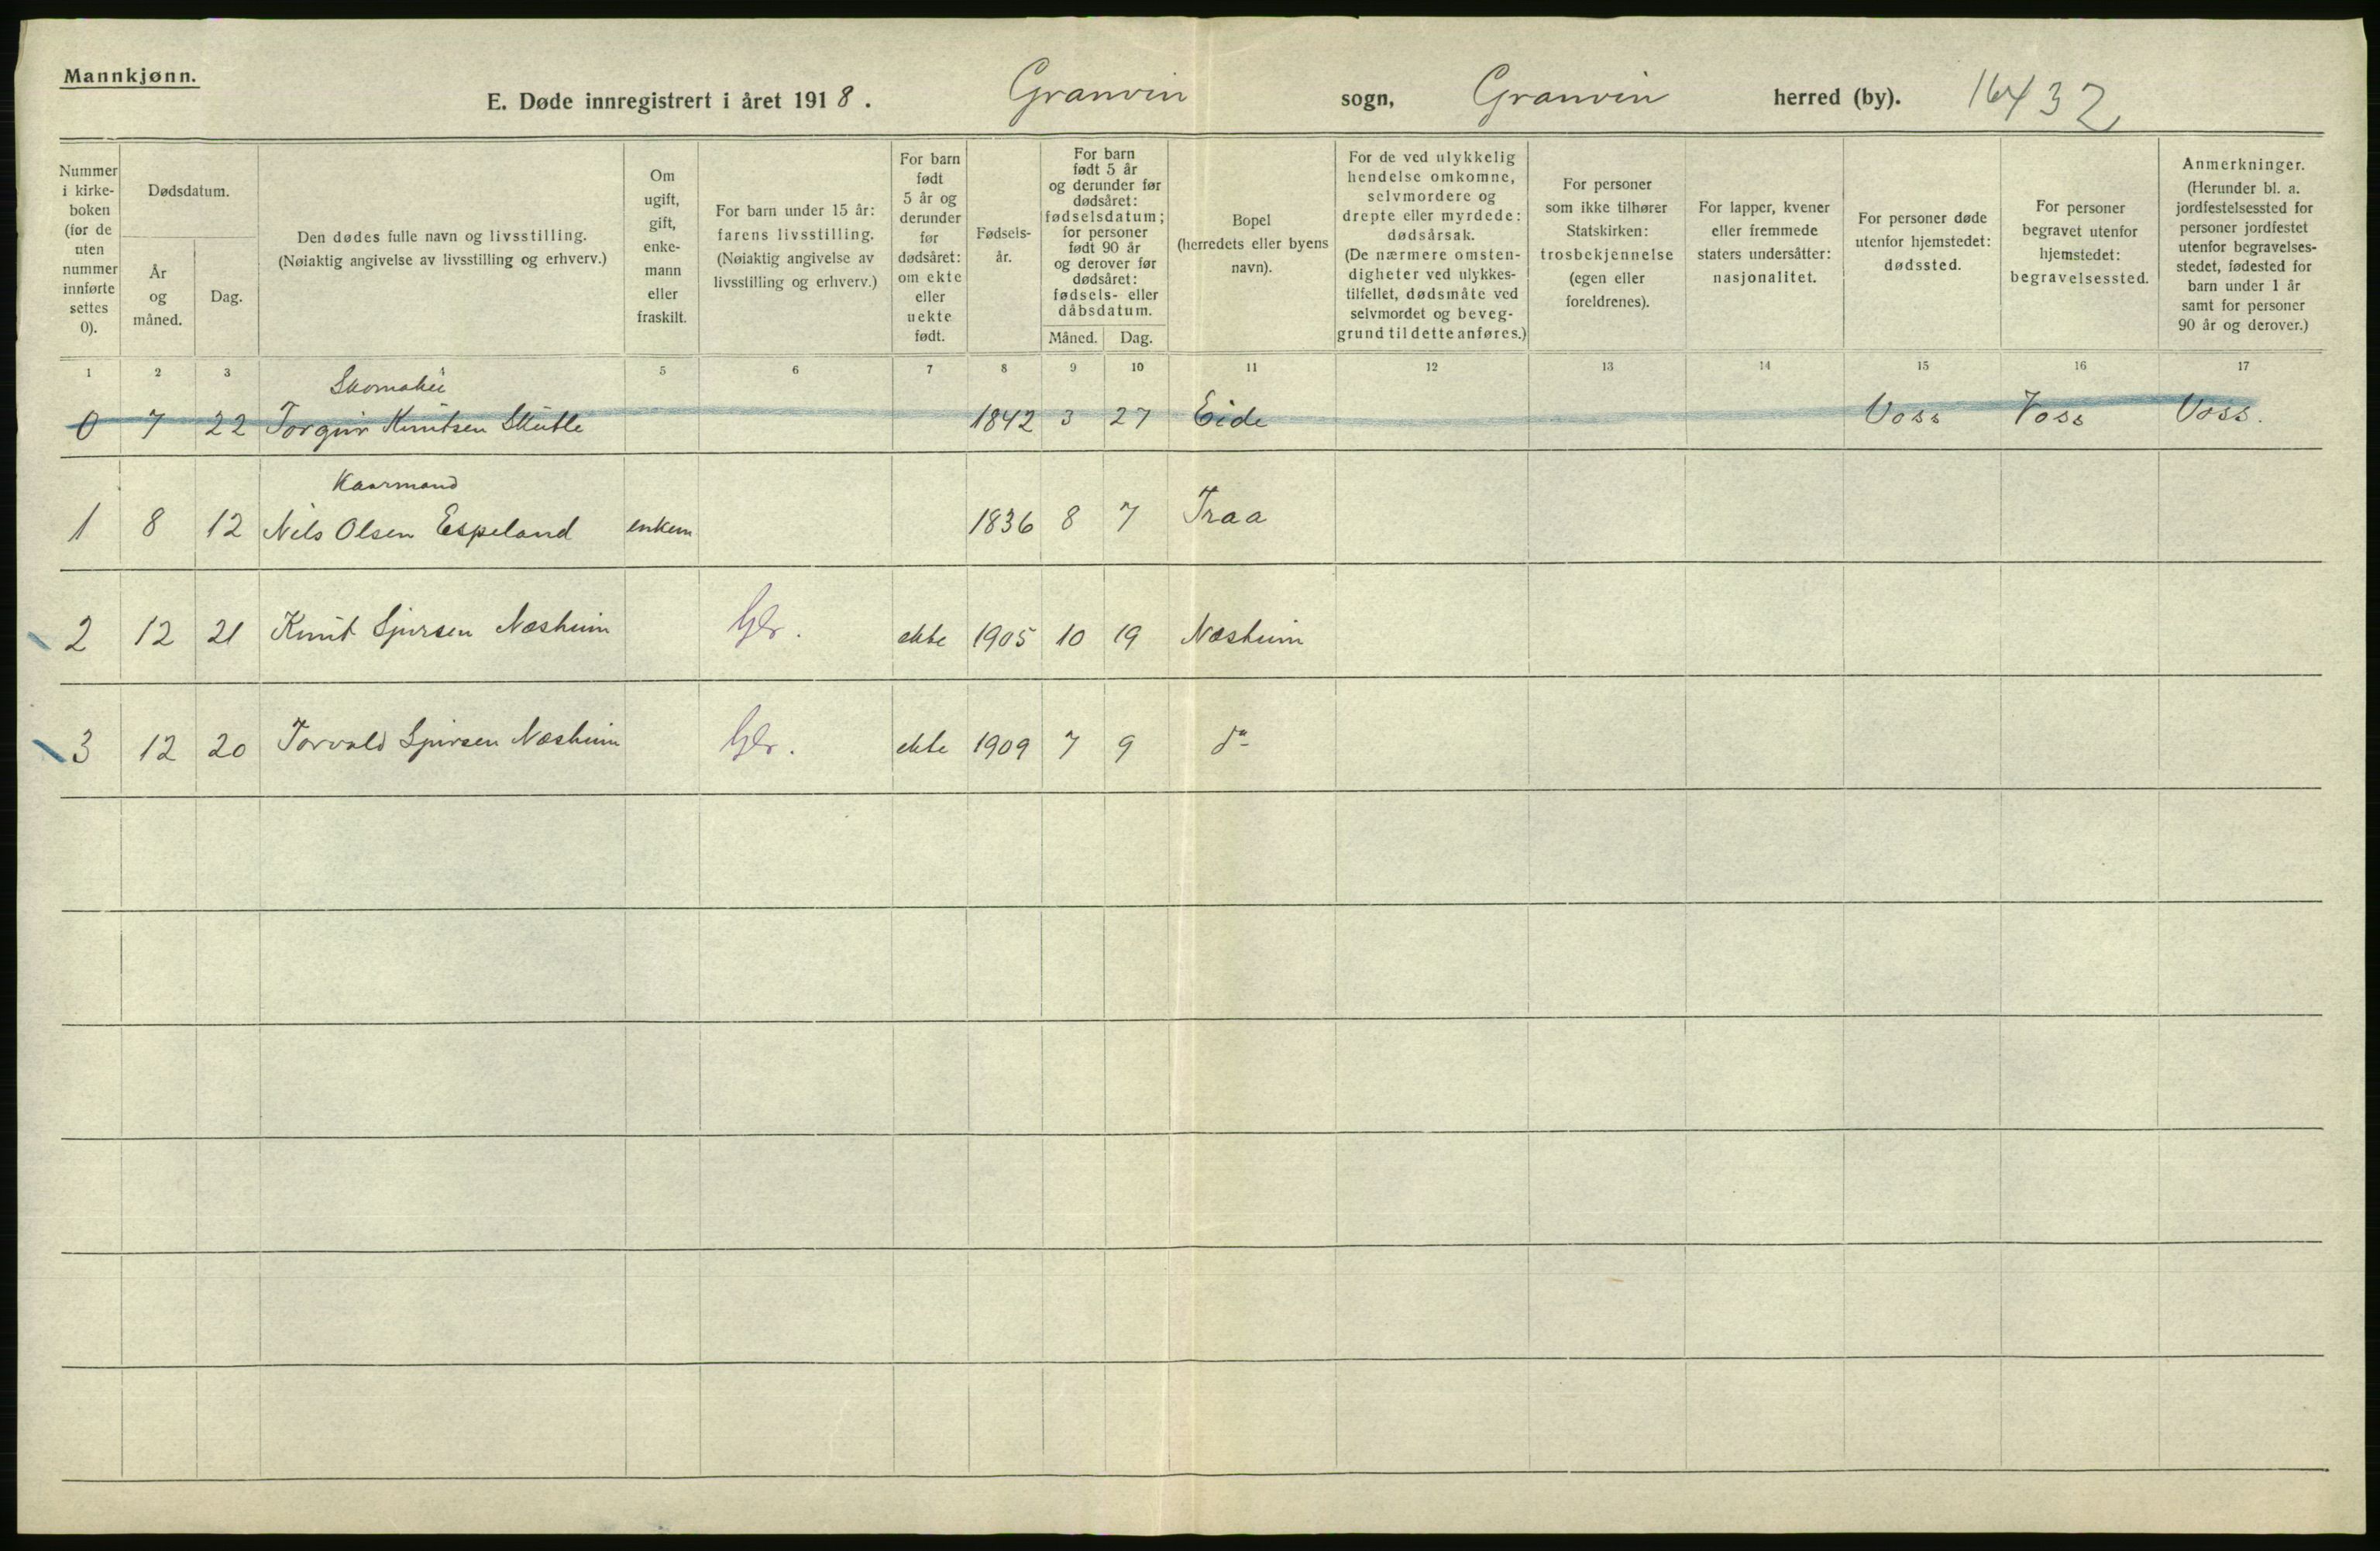 Mannkjønn.
E. Døde innregistrert i året 1918. Granvin sogn, Granvin herred (by). 16432
Nummer i kirke-boken (for de uten nummer innførte settes 0).
Dødsdatum.
År og måned.
Dag.
Den dødes fulle navn og livsstilling.
(Nøiaktig angivelse av livsstilling og erhverv.)
Om ugift, gift, enke-mann eller fraskilt.
For barn under 15 år: farens livsstilling. (Nøiaktig angivelse av livsstilling og erhverv.)
For barn født 5 år og derunder før dødsåret: om ekte eller uekte født.
Fødsels-år.
For barn født 5 år og derunder før dødsåret: fødselsdatum; for personer født 90 år og derover før dødsåret: fødsels- eller dåbsdatum.
Måned. Dag.
Bopel (herredets eller byens navn).
For de ved ulykkelig hendelse omkomne, selvmordere og drepte eller myrdede: dødsårsak. (De nærmere omsten-digheter ved ulykkes-tilfellet, dødsmåte ved selvmordet og beveg-grund til dette anføres.)
For personer som ikke tilhører Statskirken: trosbekjennelse (egen eller foreldrenes).
For lapper, kvener eller fremmede staters undersåtter: nasjonalitet.
For personer døde utenfor hjemstedet: dødssted.
For personer begravet utenfor hjemstedet: begravelsessted.
Anmerkninger. (Herunder bl. a. jordfestelsessted for personer jordfestet utenfor begravelses-stedet, fødested for barn under 1 år samt for personer 90 år og derover.)
1 2 3 4 5 6 7 8 9 10 11 12 13 14 15 16 17
Skomaker
0 7 22 Torgeir Knutsen Skutle 1842 3 27 Eide Voss Voss Voss.
Kaarmand
1 8 12 Nils Olsen Espeland enkem 1836 8 7 Traa
2 12 21 Knut Sjursen Næsheim Gbr. ekte 1905 10 19 Næsheim
3 12 20 Torvald Sjursen Næsheim Gbr. ekte 1909 7 9 do